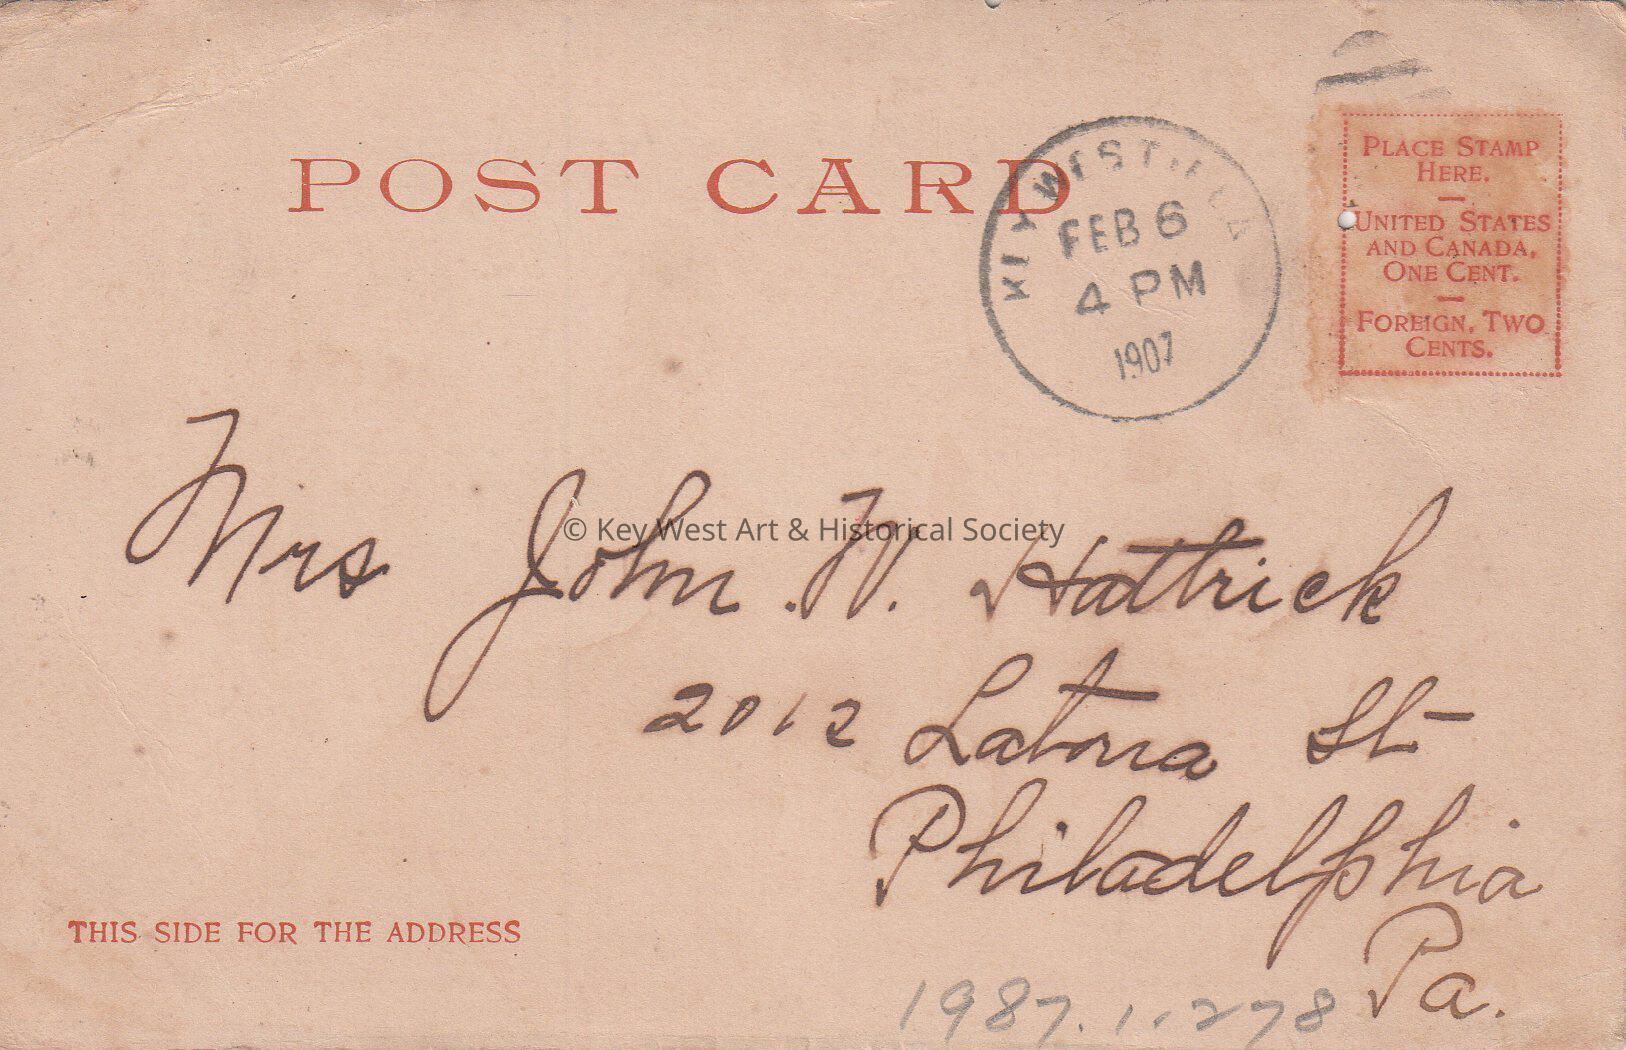 POST CARD
KEY WEST, FLA
FEB 6
4 PM
1907
PLACE STAMP
HERE.
—
UNITED STATES
AND CANADA,
ONE CENT.
—
FOREIGN, TWO
CENTS.
Mrs John W. Hattrick
© Key West Art & Historical Society
2012 Latona St
Philadelphia
Pa.
THIS SIDE FOR THE ADDRESS
1987.1.278